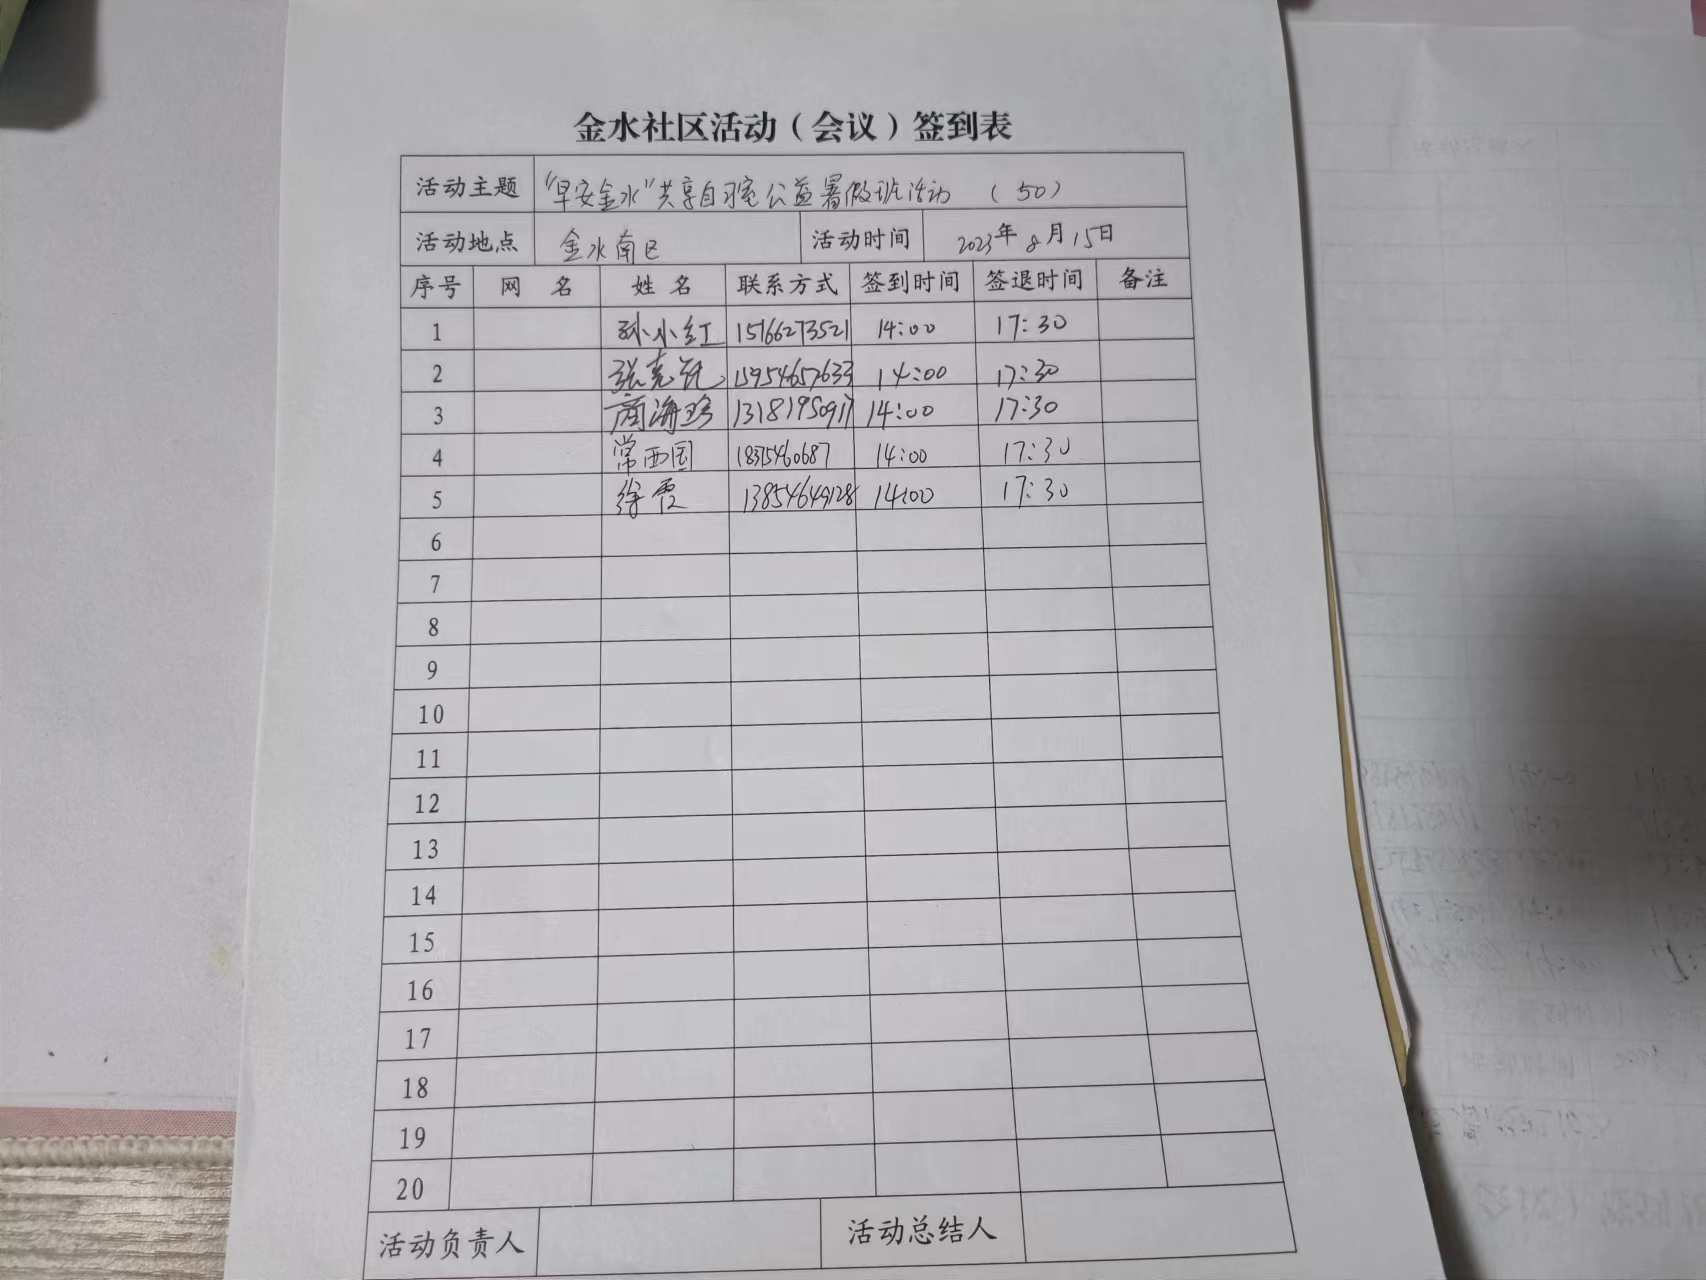 金水社区活动（会议）签到表
活动主题 “早安金水”共享自习室公益暑假班活动 （50）
活动地点 金水南区 活动时间 2023年8月15日
序号 网 名 姓 名 联系方式 签到时间 签退时间 备注
1 孙小红 15166273521 14:00 17:30
2 15954657633 14:00 17:30
3 商海珍 13181950917 14:00 17:30
4 常西国 18315460687 14:00 17:30
5 徐霞 13854649128 14:00 17:30
6
7
8
9
10
11
12
13
14
15
16
17
18
19
20
活动负责人 活动总结人